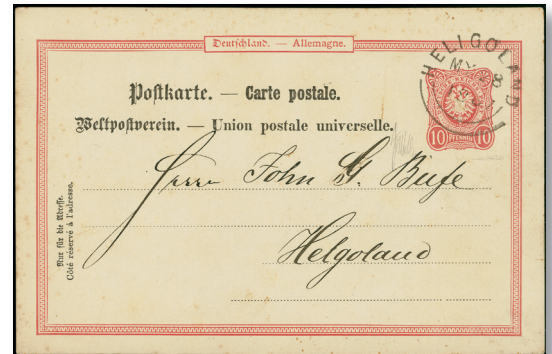 Deutschland. — Allemagne.
Postkarte. — Carte postale.
Weltpostverein. — Union postale universelle.
HELIGOLAND
MY 8
10 PFENNIG 10
Herrn John G. Bufe
Helgoland
Nur für die Adresse.
Côté réservé à l'adresse.